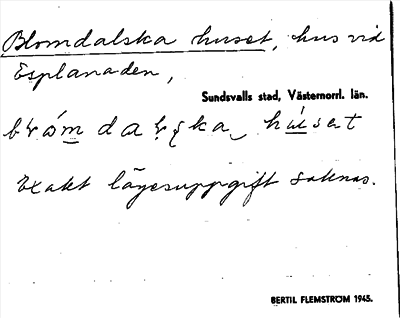 Blomdalska huset, hus vid
Esplanaden,
Sundsvalls stad, Västernorrl. län.
Exakt lägesuppgift saknas.
BERTIL FLEMSTRÖM 1945.